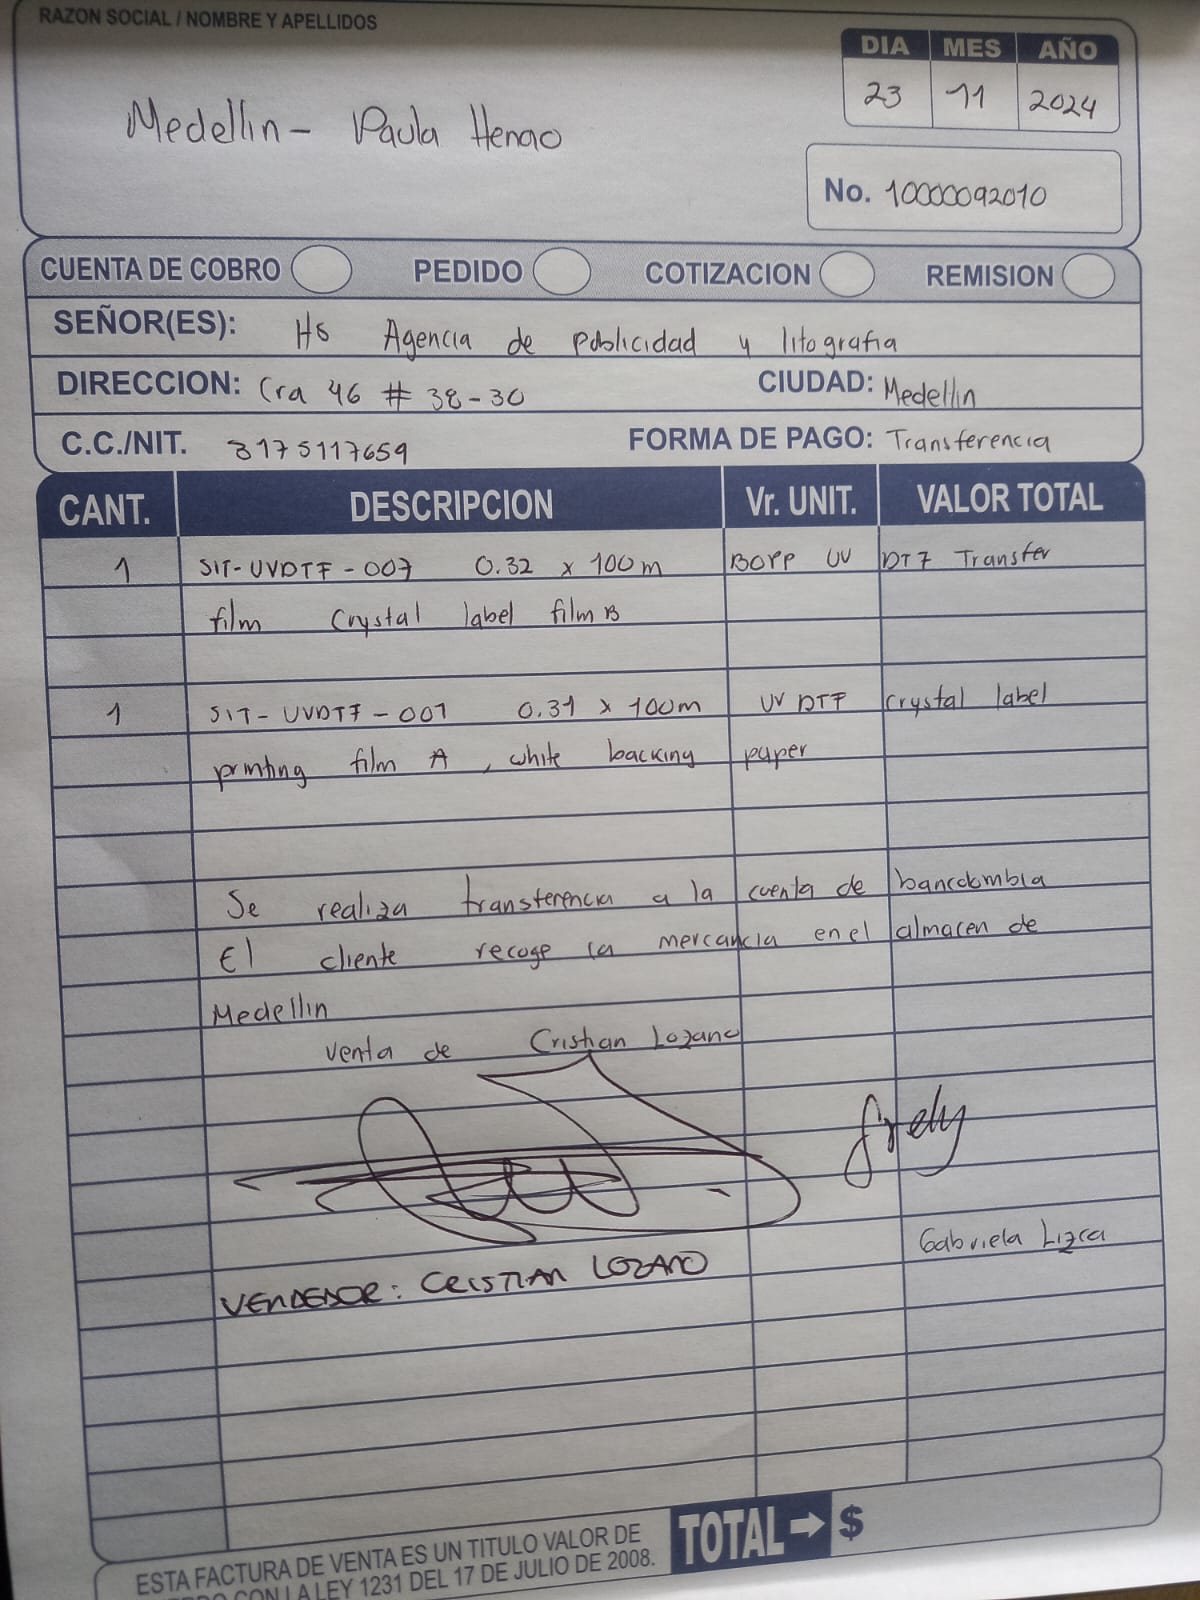 RAZON SOCIAL / NOMBRE Y APELLIDOS
DIA MES AÑO
23 11 2024
Medellin - Paula Henao
No. 10000092010
CUENTA DE COBRO PEDIDO COTIZACION REMISION
SEÑOR(ES): HS Agencia de publicidad y litografia
DIRECCION: Cra 46 # 38-30 CIUDAD: Medellin
C.C./NIT. 3175117659 FORMA DE PAGO: Transferencia
CANT. DESCRIPCION Vr. UNIT. VALOR TOTAL
1 SIT-UVDTF-007 0.32 x 100m BOPP UV DTF Transfer
film Crystal label film B
1 SIT-UVDTF-001 0.31 x 100m UV DTF crystal label
printing film A, white backing paper
Se realiza transferencia a la cuenta de bancolombia
El cliente recoge la mercancia en el almacen de
Medellin
venta de Cristian Lozano
Gabriela
VENDEDOR: CRISTIAN LOZANO
TOTAL → $
ESTA FACTURA DE VENTA ES UN TITULO VALOR DE
CON LA LEY 1231 DEL 17 DE JULIO DE 2008.